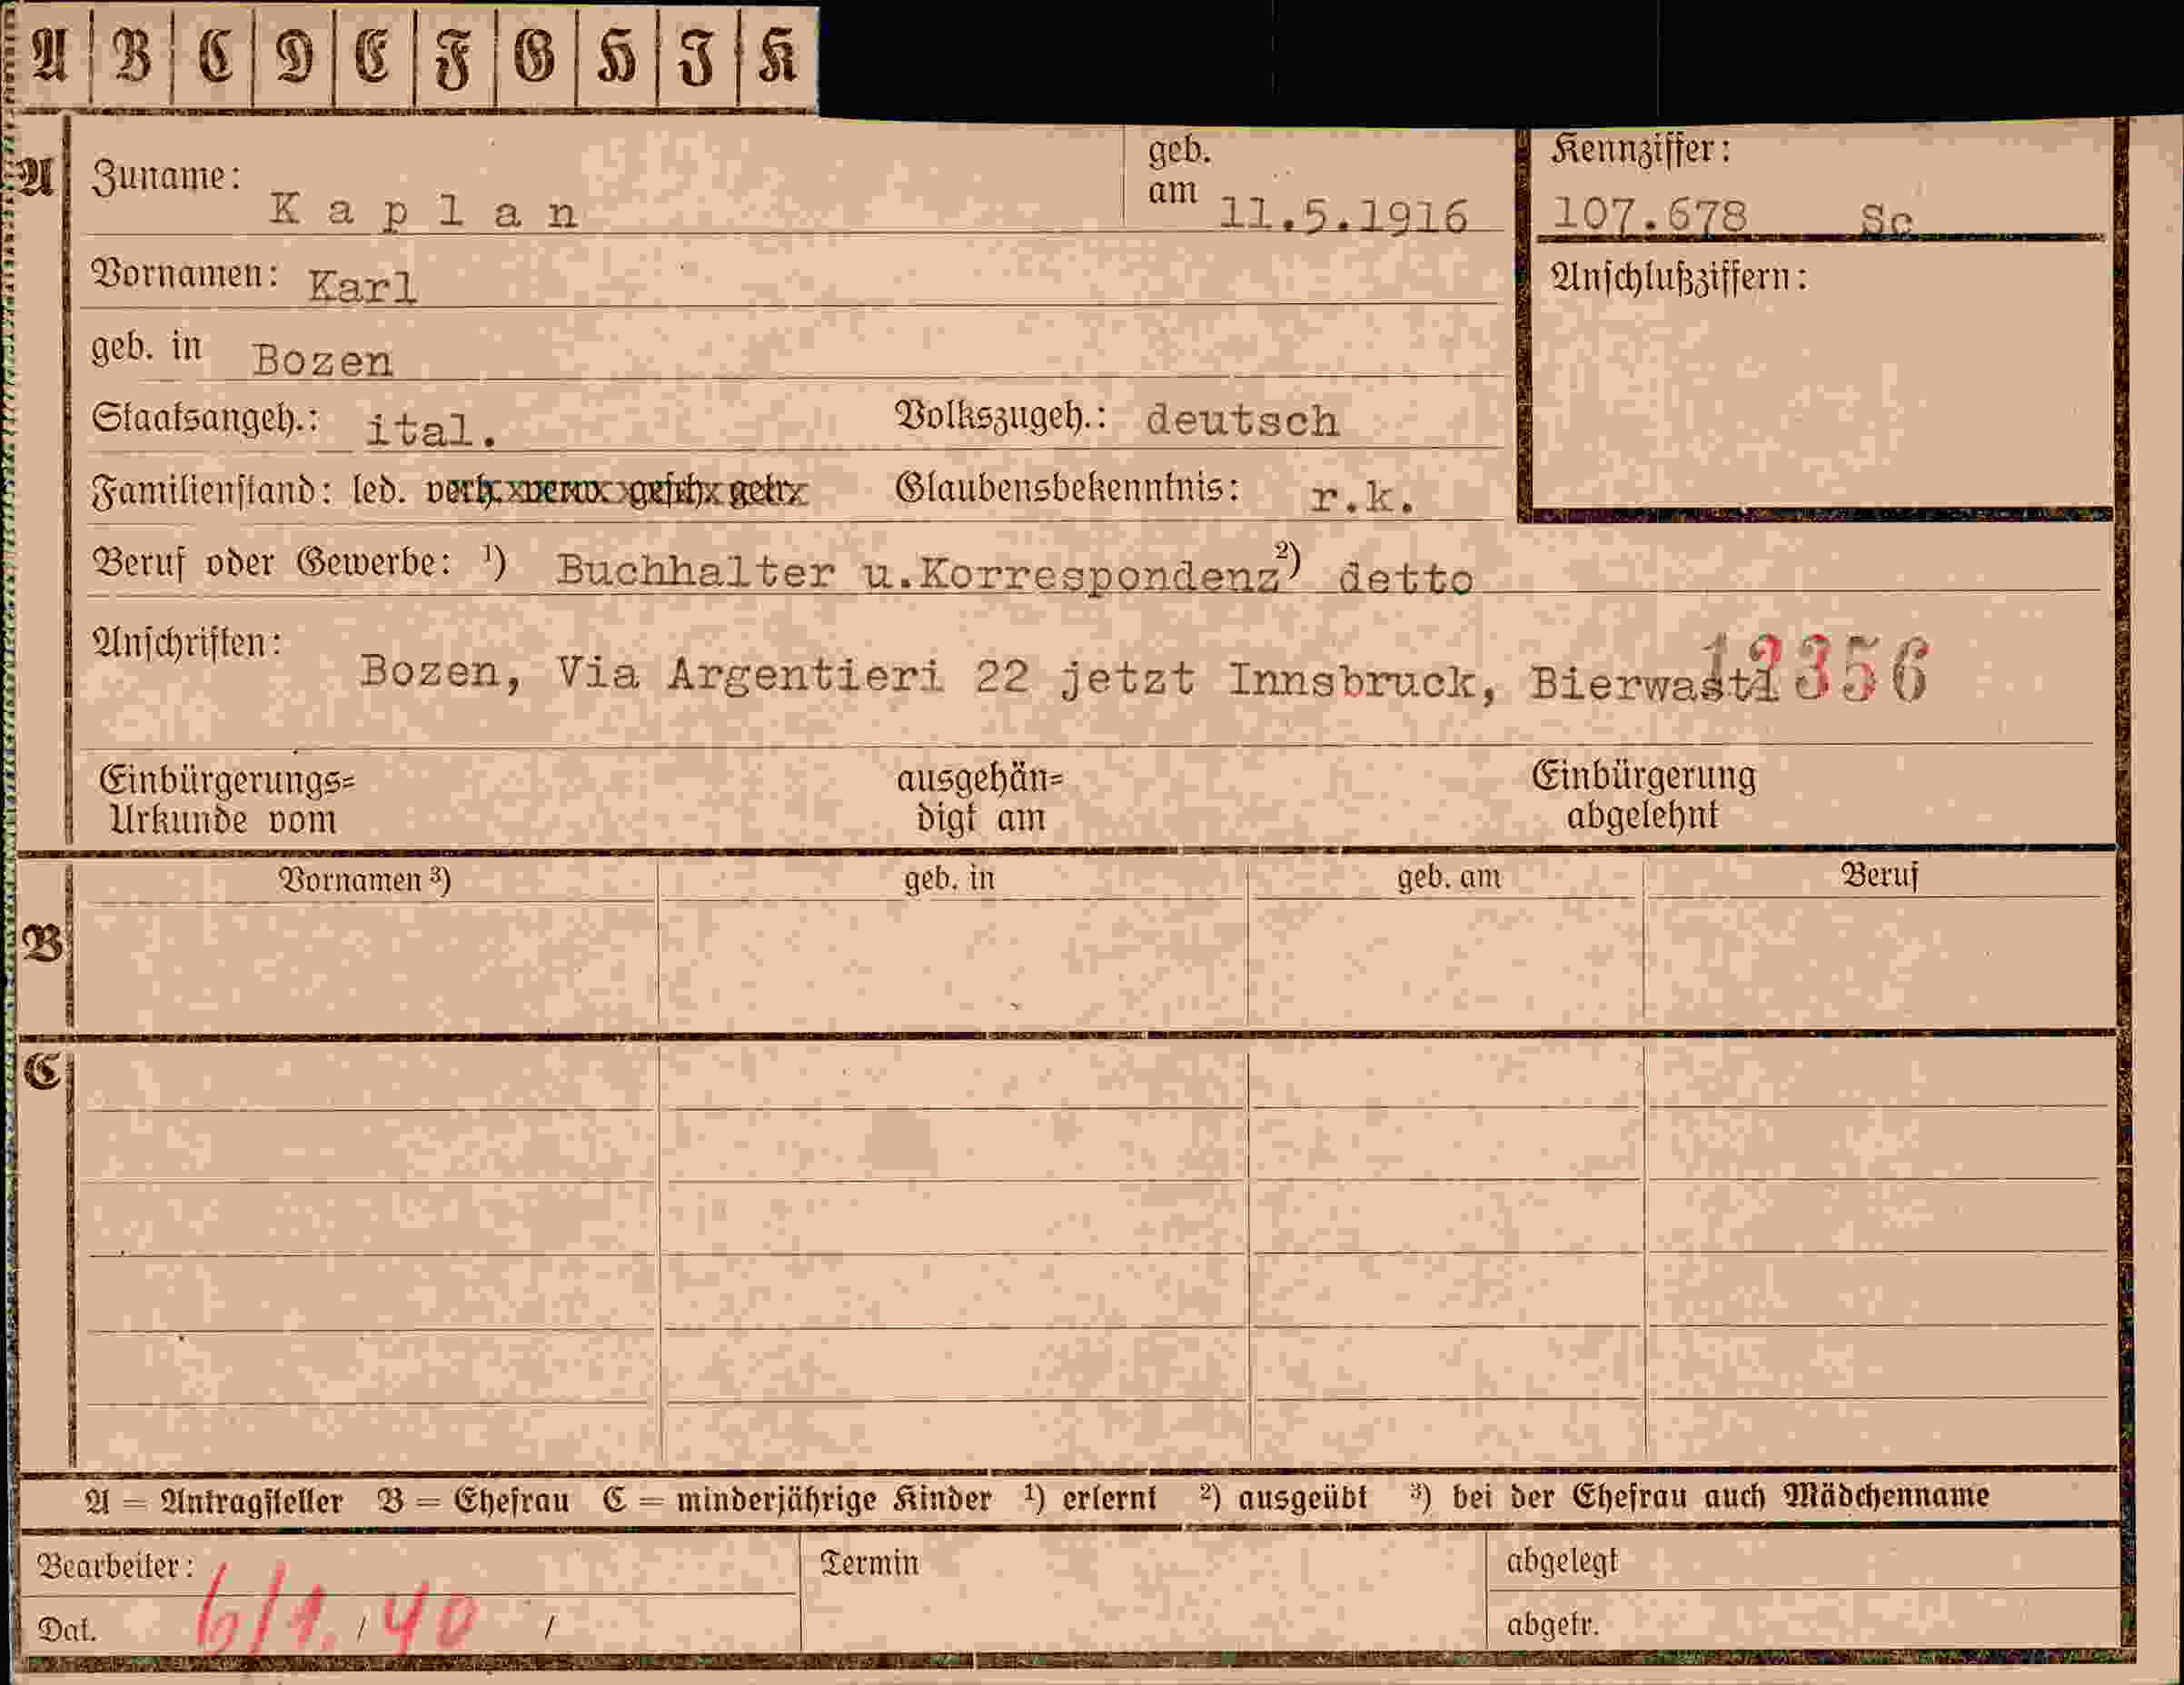 A B C D E F G H J K
A Zuname: Kaplan geb. am 11.5.1916 Kennziffer: 107.678 Sc
Vornamen: Karl Anschlußziffern:
geb. in Bozen
Staatsangeh.: ital. Volkszugeh.: deutsch
Familienstand: led. verh. verw. gesch. getr. Glaubensbekenntnis: r.k.
Beruf oder Gewerbe: ¹) Buchhalter u.Korrespondenz ²) detto
Anschriften: Bozen, Via Argentieri 22 jetzt Innsbruck, 12356
Einbürgerungs= ausgehän= Einbürgerung
Urkunde vom digt am abgelehnt
B Vornamen ³) geb. in geb. am Beruf
C
A = Antragsteller B = Ehefrau C = minderjährige Kinder ¹) erlernt ²) ausgeübt ³) bei der Ehefrau auch Mädchenname
Bearbeiter: Termin abgelegt
Dat. 6/1. / 40 / abgetr.